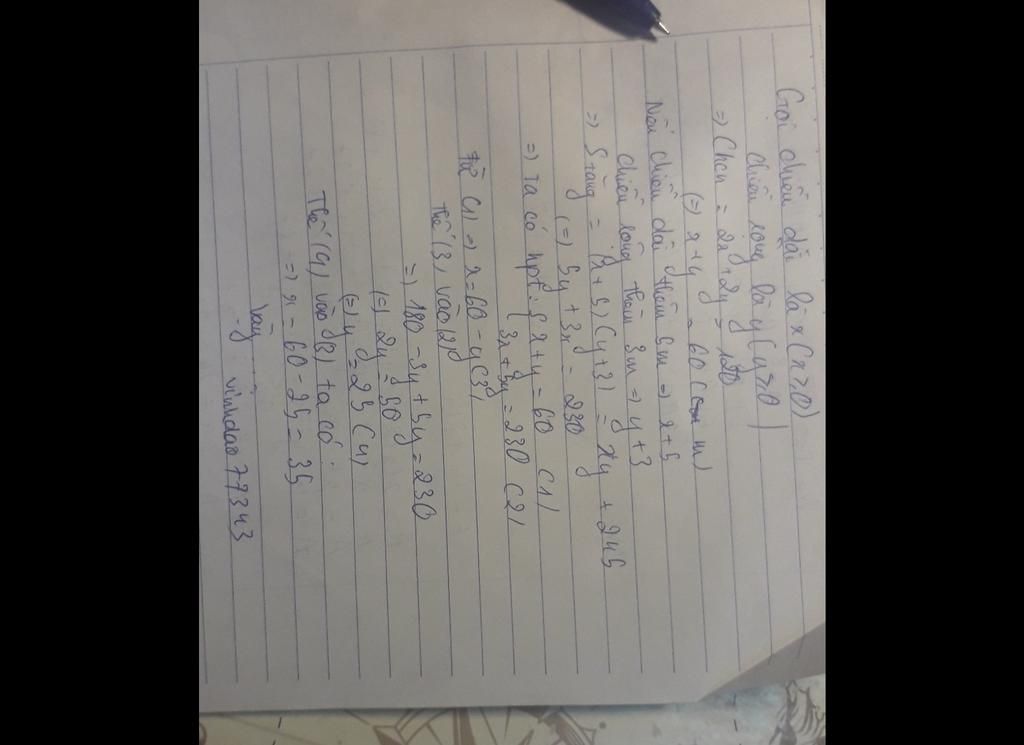 Gọi chiều dài là x (x > 0)
chiều rộng là y (y > 0)
=> Chcn = 2x + 2y = 120
(=) x + y = 60 (m)
Nếu chiều dài thêm 5m => x + 5
chiều rộng thêm 3m => y + 3
=> S tăng = (x + 5)(y + 3) = xy + 245
(=) 5y + 3x = 230
=> Ta có hpt: { x + y = 60 (1)
3x + 5y = 230 (2)
Từ (1) => x = 60 - y (3)
Thế (3) vào (2)
=> 180 - 3y + 5y = 230
(=) 2y = 50
(=) y = 25 (4)
Thế (4) vào (3) ta có:
=> x = 60 - 25 = 35
Vậy ....
vinhdao77343